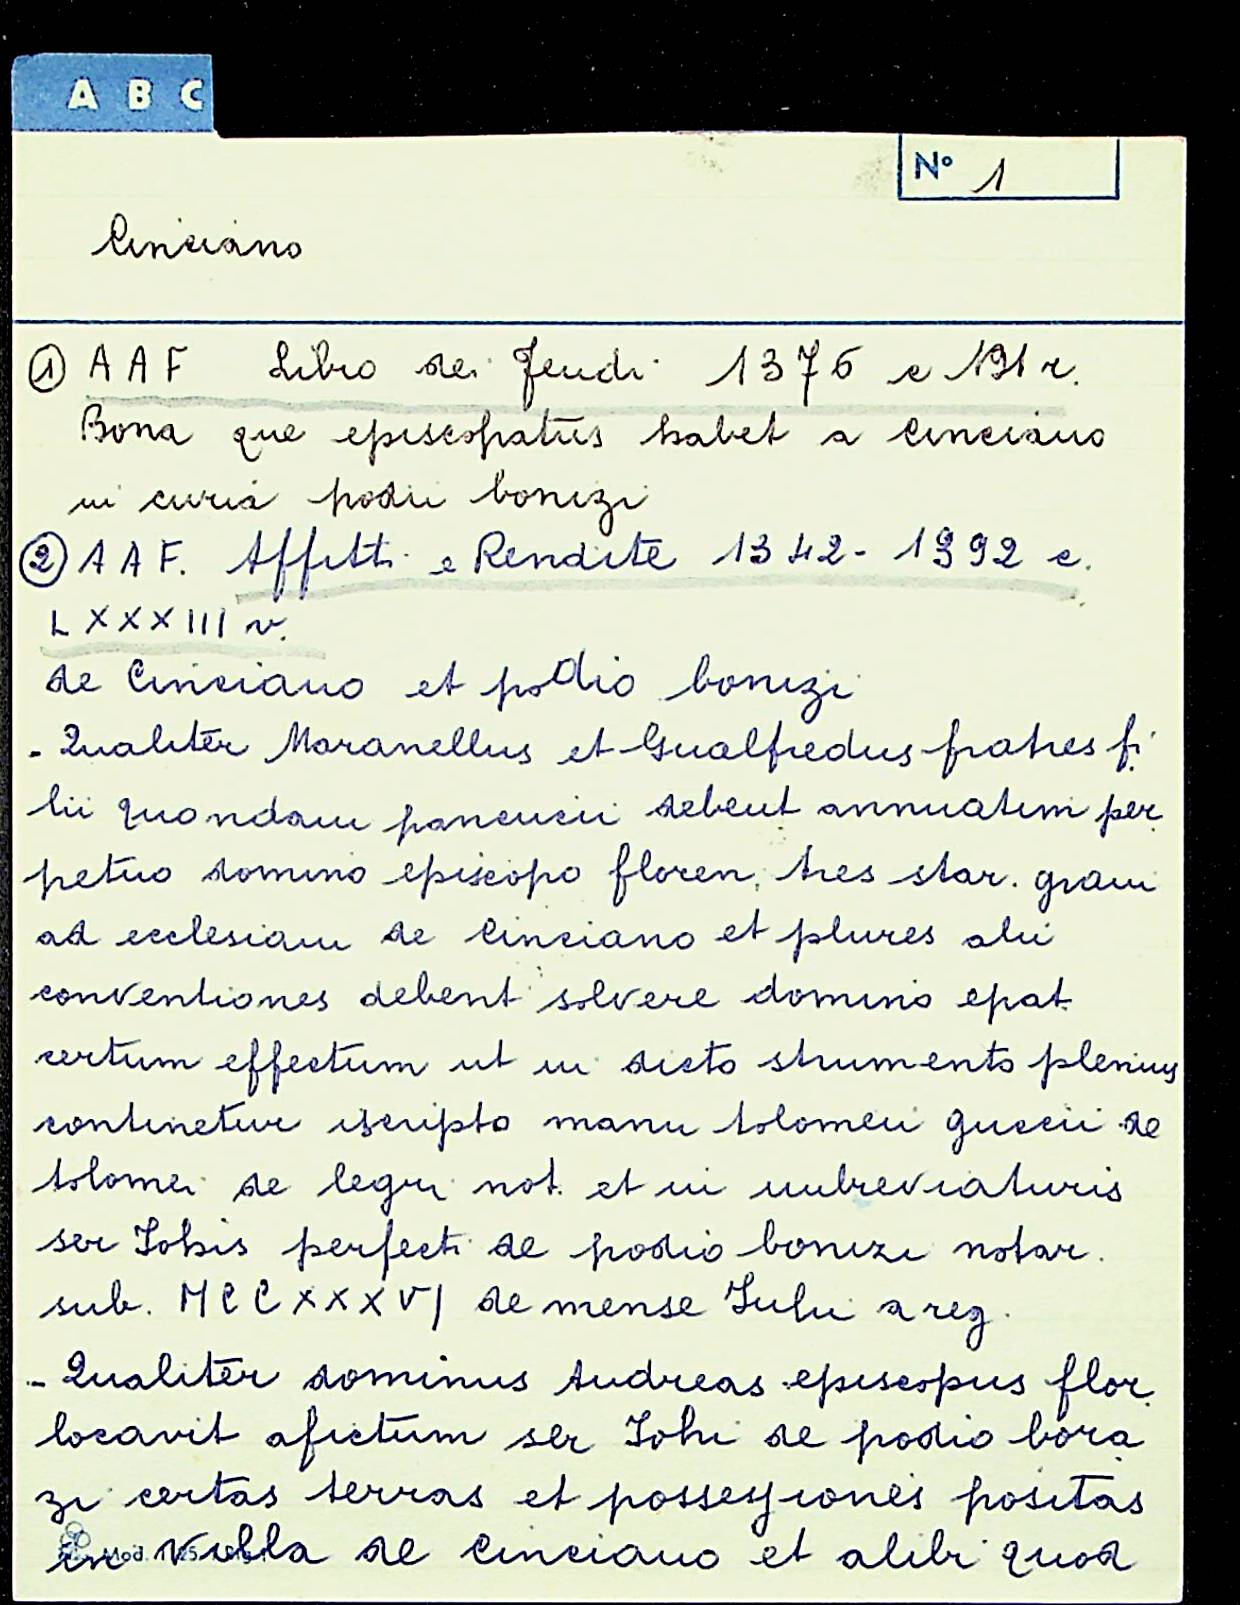 A B C
Nº 1
Cinciano
① A A F Libro dei feudi 1376 c 191 r.
Bona que episcopatus habet a Cinciano
in curia podii bonizi
② A A F. Affitti e Rendite 1342-1392 c.
LXXXIII v.
de Cinciano et podio bonizi
- Qualiter Maranellus et Gualfredus fratres fi
lii quondam pancucii debent annuatim per
petuo domino episcopo floren. tres star. grani
ad ecclesiam de Cinciano et plures alii
conventiones debent solvere domino epat.
certum effectum ut in dicto strumento plenius
continetur iscripto manu tolomeii guccii de
tolomei de legri not. et in inbreviaturis
ser Iohis perfecti de podio bonizi notar.
sub. MCCXXXVI de mense Iulii a reg.
- Qualiter dominus Andreas episcopus flor.
locavit afictum ser Iohi de podio bora
zi certas terras et possessiones positas
in villa de Cinciano et alibi quod